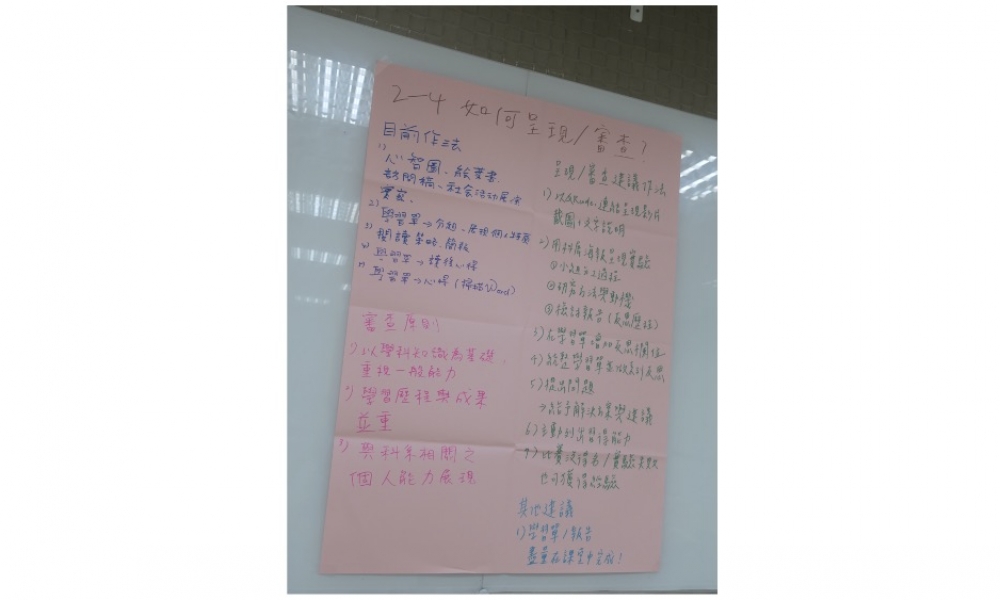 2-4 如何呈現/審查?
目前作法
1)
心智圖、繪葉書、
訪問稿、社會活動展演
實察、
2) 學習單→分組、展現個人特質
3) 閱讀策略、簡報
4) 學習單→讀後心得
5) 學習單→心得(掃描Word)
審查原則
1) 以學科知識為基礎,
重視一般能力
2) 學習歷程與成果
並重
3) 與科系相關之
個人能力展現
呈現/審查建議作法
1) 以QRcode連結呈現影片
截圖+文字說明
2) 用科展海報呈現實驗
①小組分工過程
②研究方法與動機
③檢討報告(反思歷程)
3) 在學習單增加反思欄位
4) 統整學習單並做系列反思
5) 提出問題
→給予解決方案與建議
6) 主動列出習得能力
7) 比賽沒得名/實驗失敗
也可獲得經驗
其他建議
1) 學習單/報告
盡量在課堂中完成!